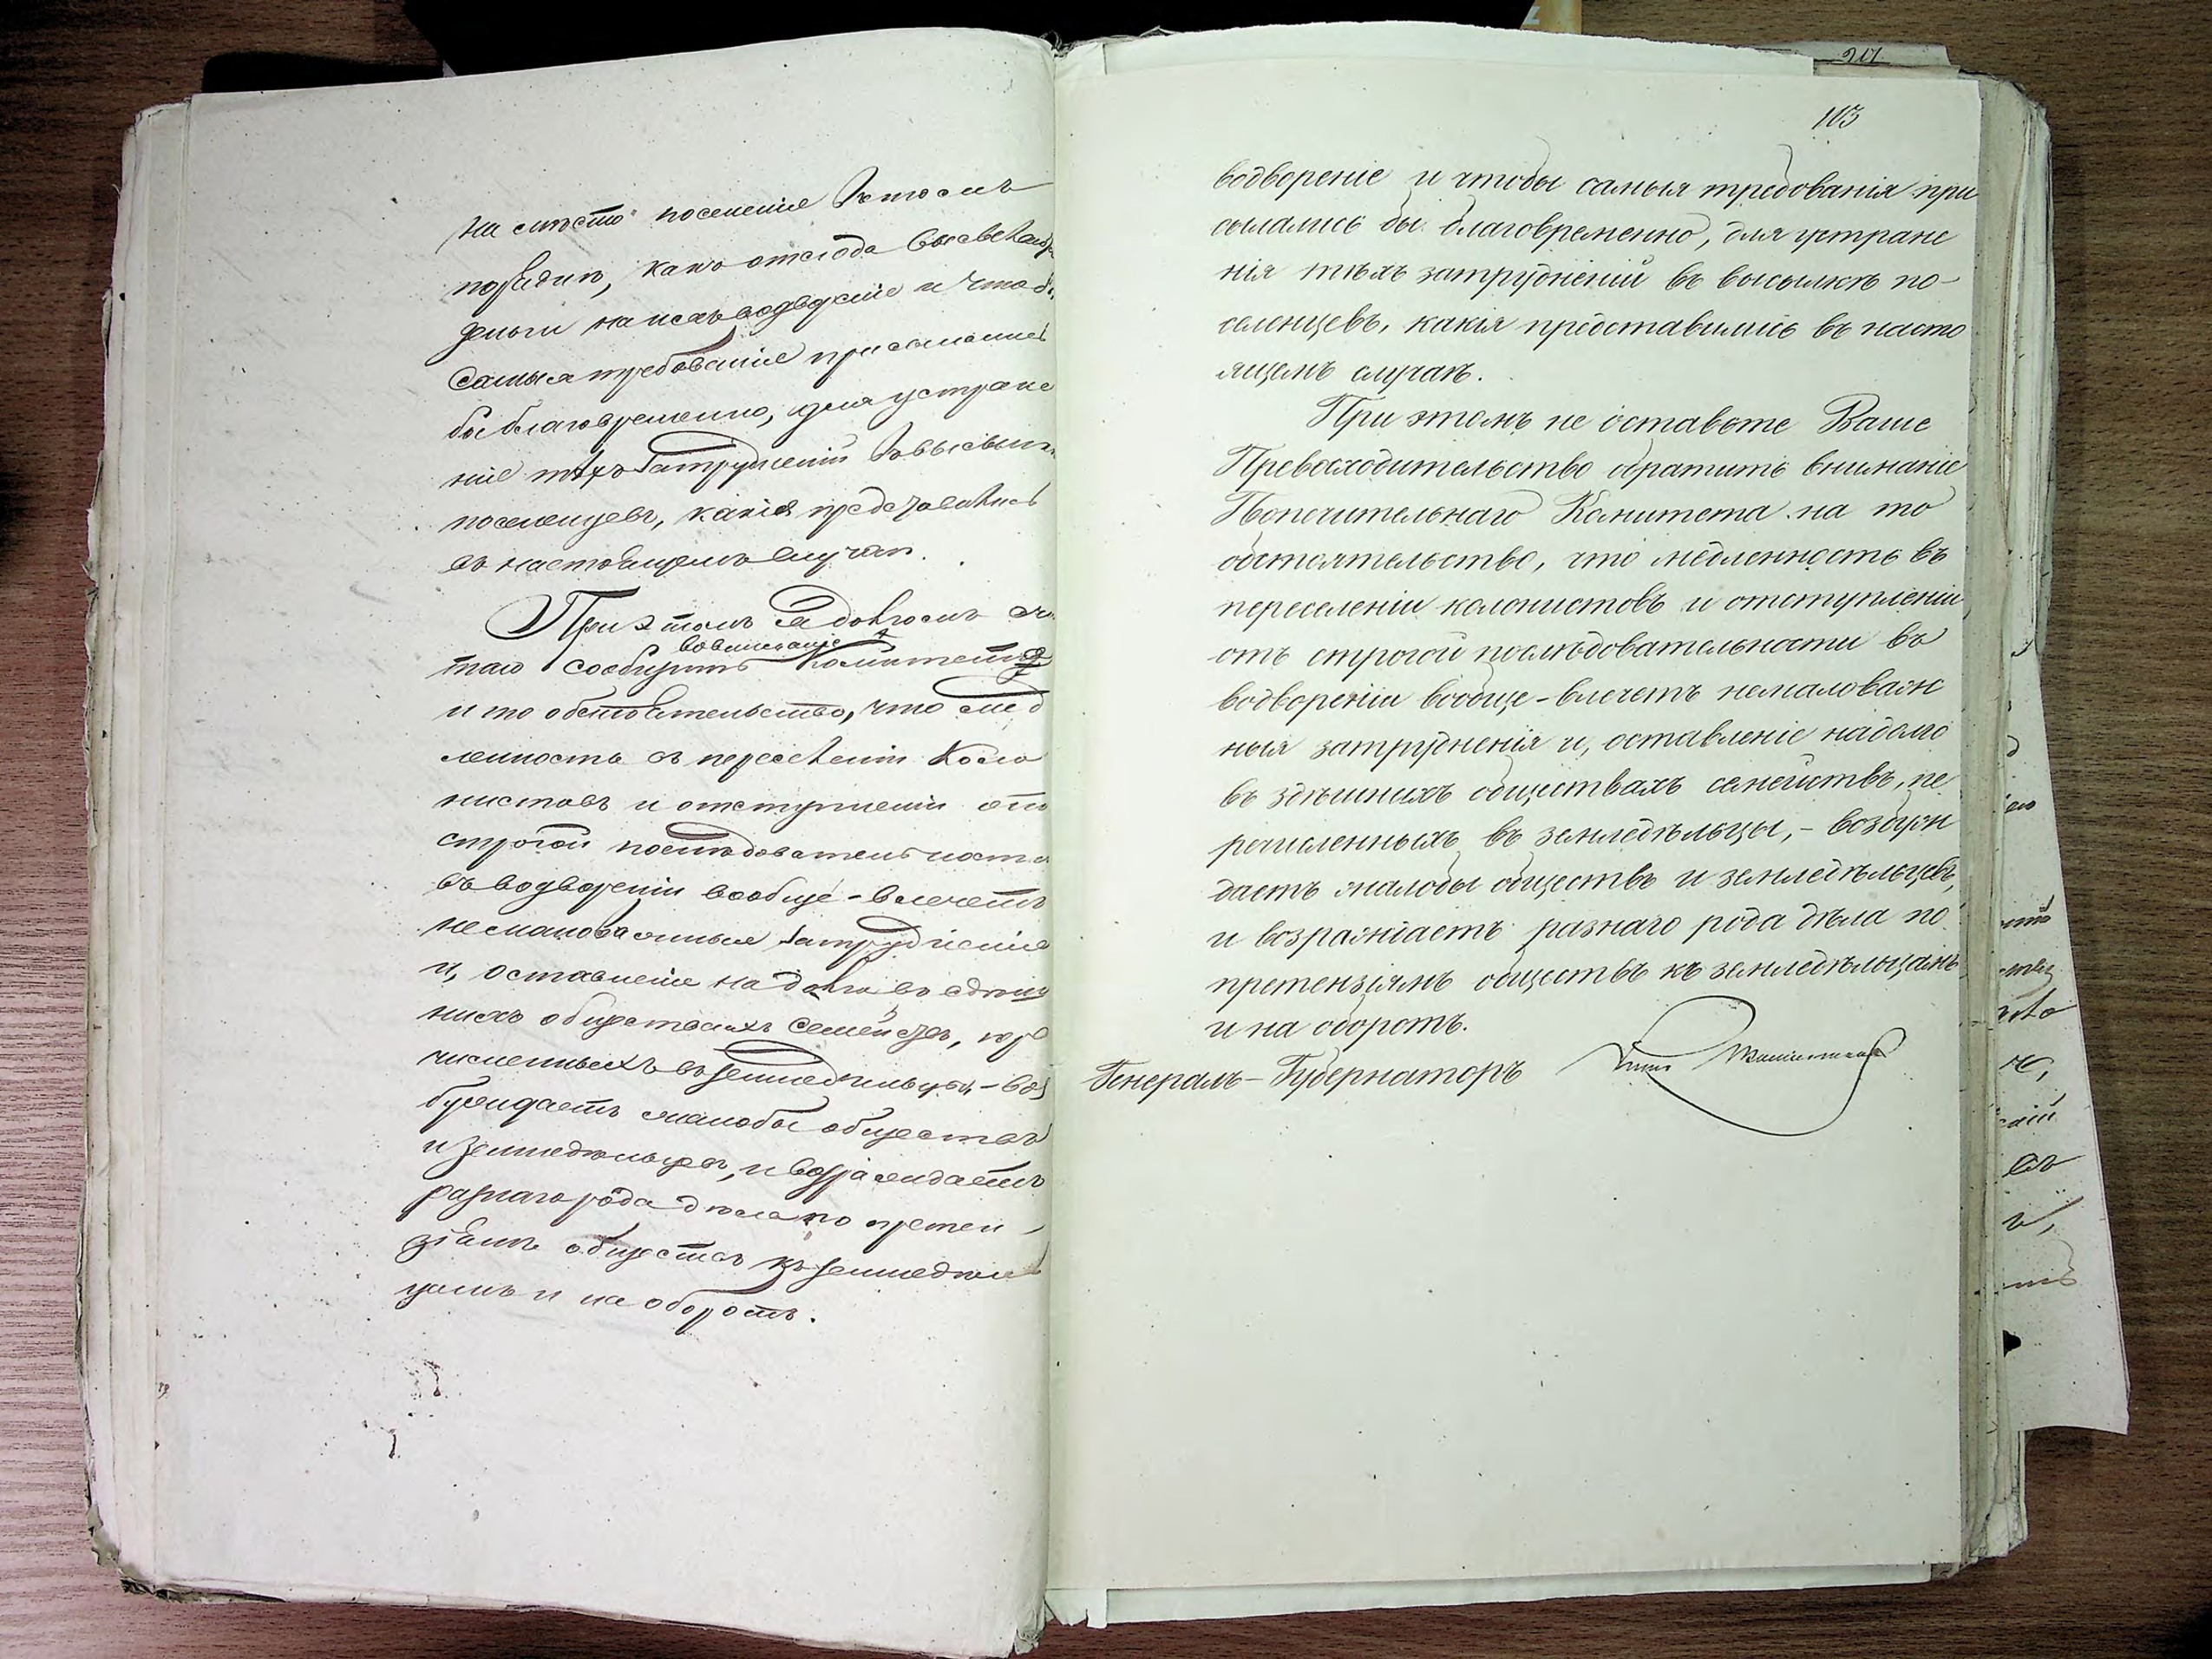 на мѣсто поселенія въ томъ
порядкѣ, какъ отсюда высылаются
деньги на ихъ водвореніе и чтобы
самыя требованія присылались
бы благовременно, для устране
нія тѣхъ затрудненій въ высылкѣ
поселенцевъ, какія представились
въ настоящемъ случаѣ.
При этомъ долгомъ счи
таю сообщить Комитету
во вниманіе
и то обстоятельство, что мед
ленность въ переселеніи коло
нистовъ и отступленіи отъ
строгой послѣдовательности
въ водвореніи вообще - влечетъ
немаловажныя затрудненія
и, оставленіе надолго въ здѣш
нихъ обществахъ семействъ, пере
численныхъ въ земледѣльцы, - воз
буждаетъ жалобы обществъ
и земледѣльцевъ, и возраждаетъ
разнаго рода дѣла по претен
зіямъ обществъ къ земледѣль
цамъ и на оборотъ.
201
103
водвореніе и чтобы самыя требованія при
сылались бы благовременно, для устране
нія тѣхъ затрудненій въ высылкѣ по-
селенцевъ, какія представились въ насто
ящемъ случаѣ.
При этомъ не оставьте Ваше
Превосходительство обратить вниманіе
Попечительнаго Комитета на то
обстоятельство, что медленность въ
переселеніи колонистовъ и отступленіи
отъ строгой послѣдовательности въ
водвореніи вообще - влечетъ немаловаж
ныя затрудненія и, оставленіе надолго
въ здѣшнихъ обществахъ семействъ, пе
речисленныхъ въ земледѣльцы, - возбуж
даетъ жалобы обществъ и земледѣльцевъ,
и возражнаетъ разнаго рода дѣла по
претензіямъ обществъ къ земледѣльцамъ
и на оборотъ.
Генералъ-Губернаторъ